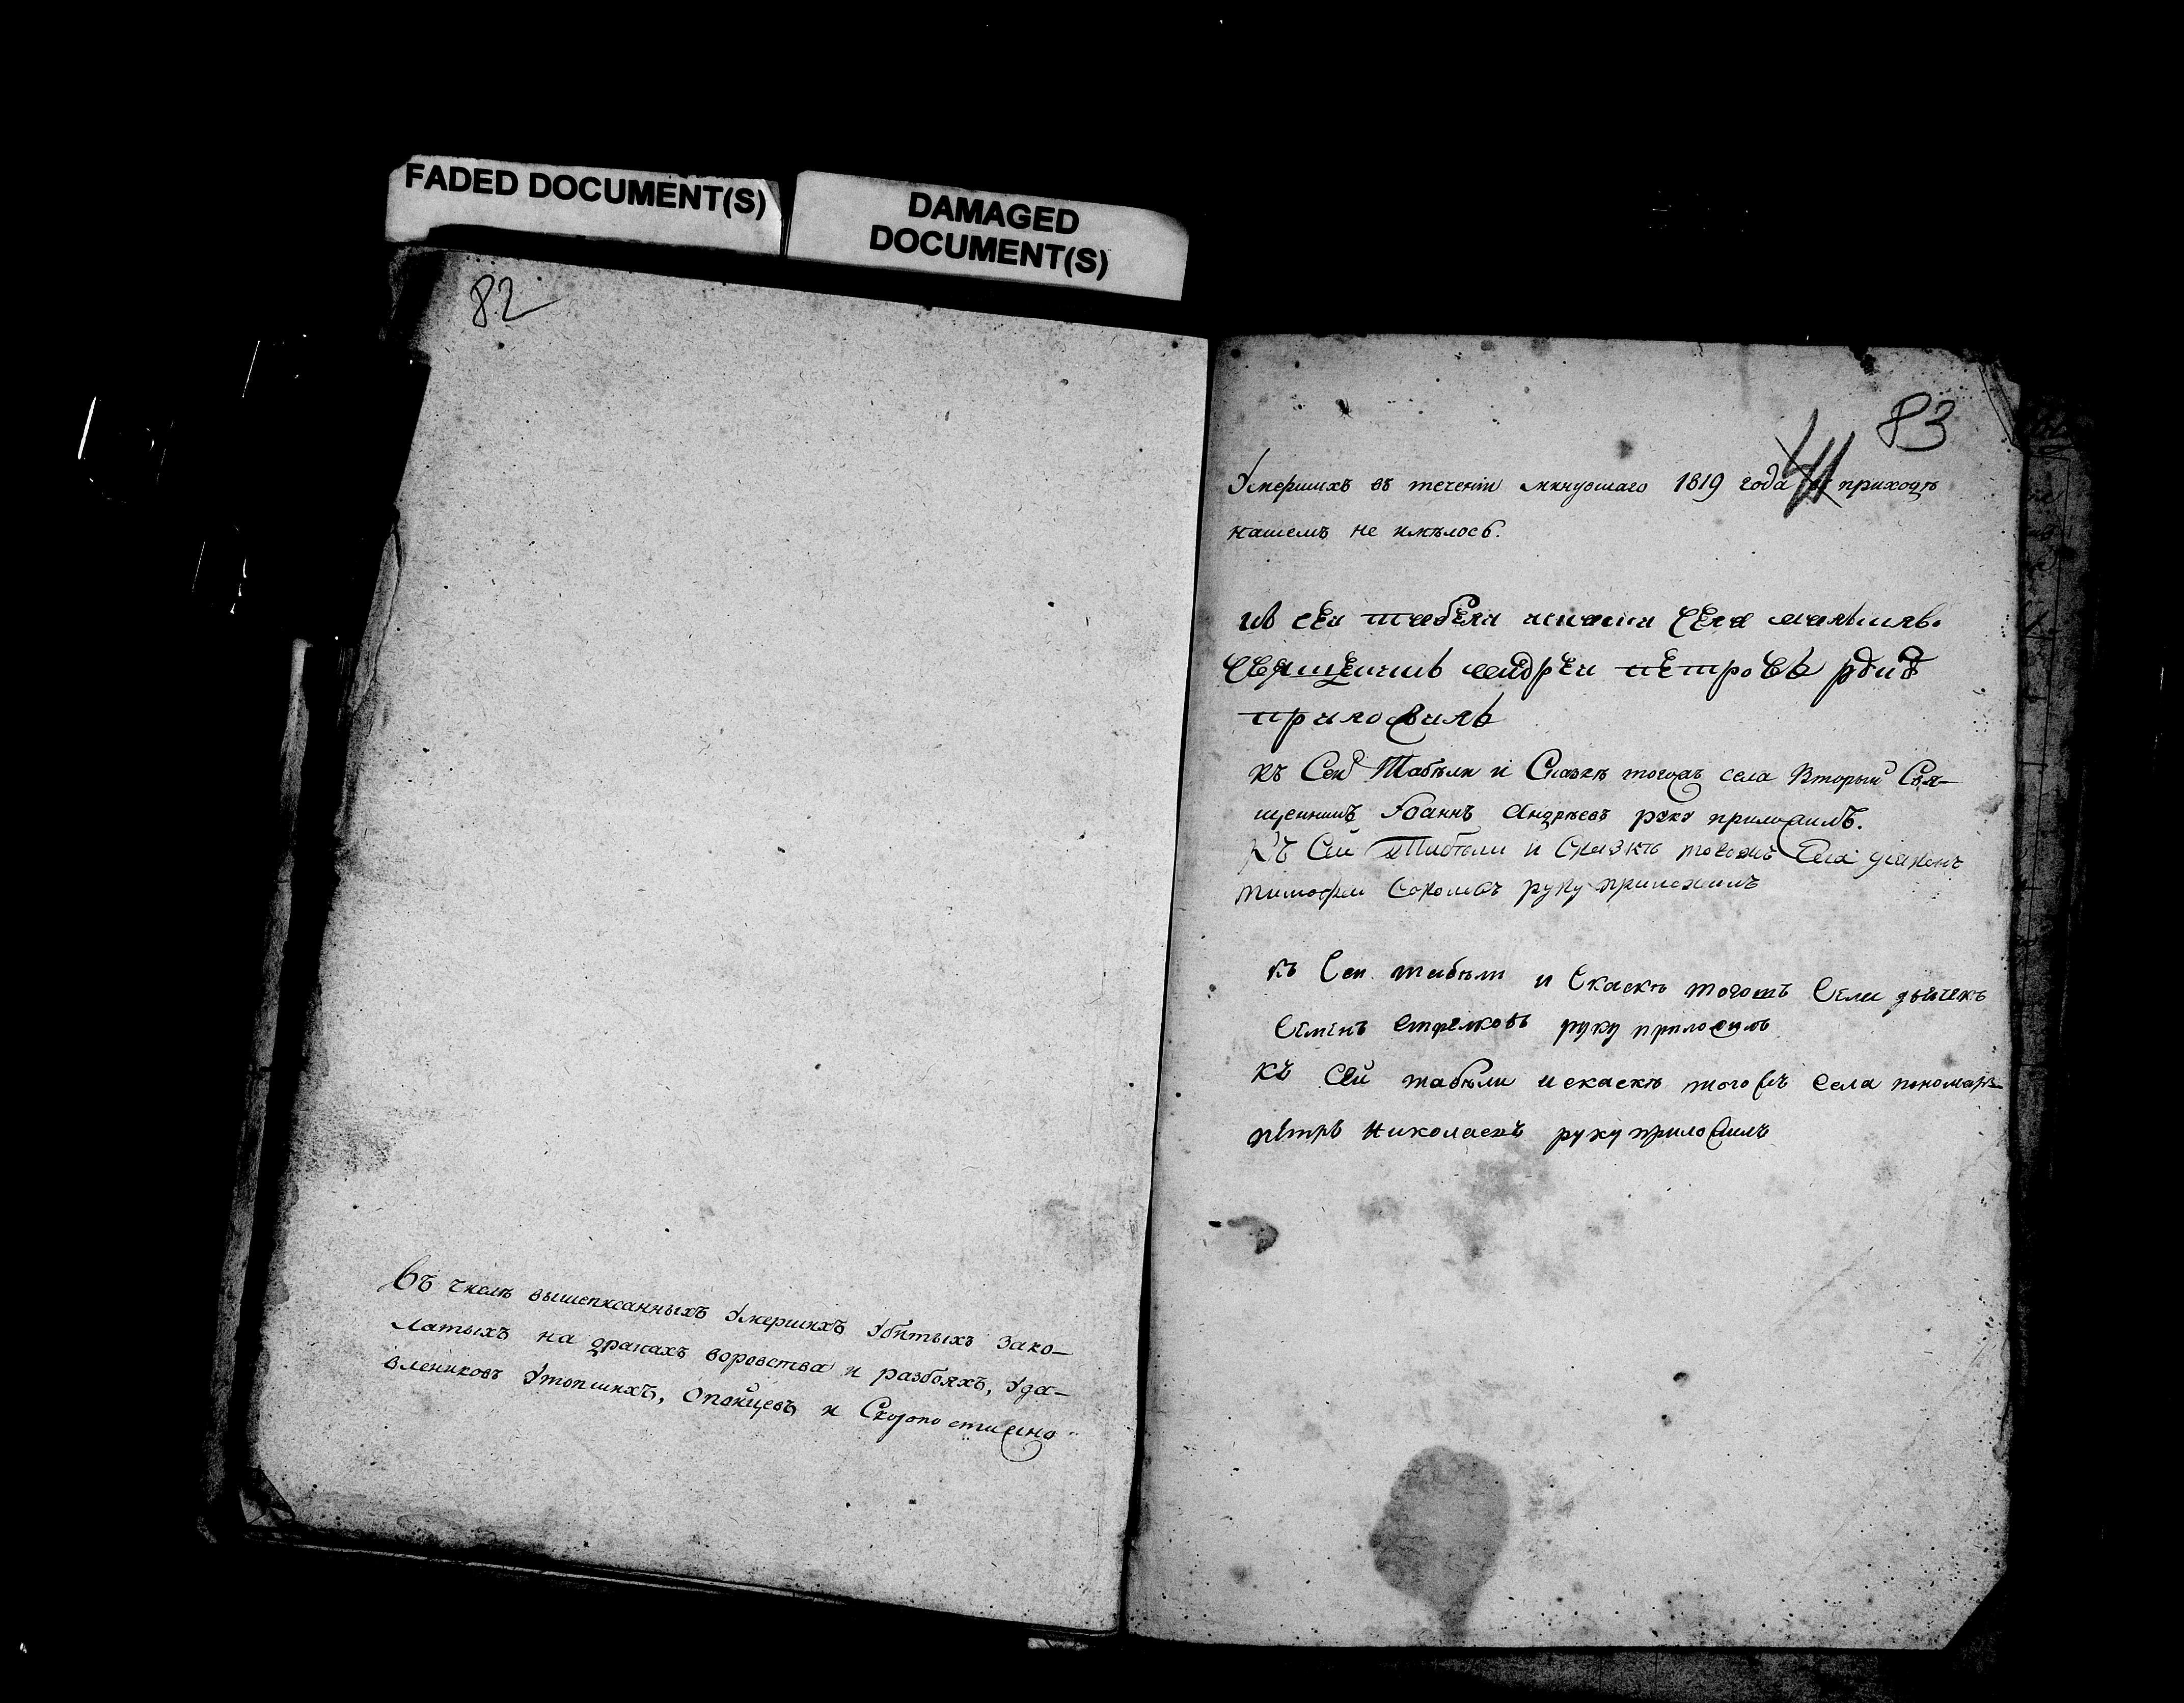 FADED DOCUMENT(S)
DAMAGED
DOCUMENT(S)
82
Въ числѣ вышеписанныхъ Умершихъ Убитыхъ зако-
латыхъ на дракахъ воровства и разбояхъ, Уда-
вленниковъ Утопшихъ, Опойцевъ и Скоропостижно
83
41
Умершихъ въ теченіи минувшаго 1819 года въ приходѣ
нашемъ не имѣлось.
сеи табели села
Священникъ андреи петровъ руку
приложилъ
къ Сей Табѣли и Сказкѣ тогожъ села Вторый Свя-
щенникъ Іоаннъ Андрѣевъ руку приложилъ.
Къ Сей Табѣли и Сказкѣ тогожъ Села діаконъ
тимофеи Соколовъ руку приложилъ
къ Сеи табѣли и Скаскѣ тогожъ Села дьячекъ
Семенъ Стрелковъ руку приложилъ
къ Сей табѣли и скаскѣ тогожъ Села пономарь
петръ Николаевъ руку приложилъ